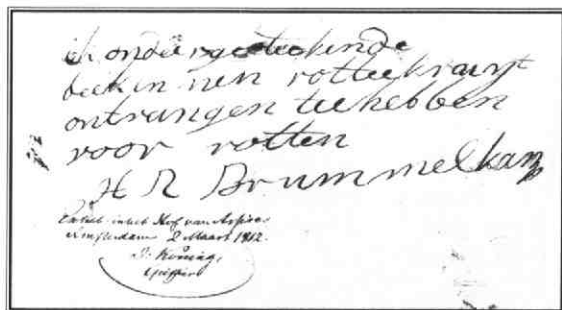 ik ondergeteekende
beken nen rottekruyt
ontvangen tee hebben
voor rotten
H R Brummelkamp
in het Hof van Assises
Amsterdam 2 Maart 1812.
J: Koning,
Griffier